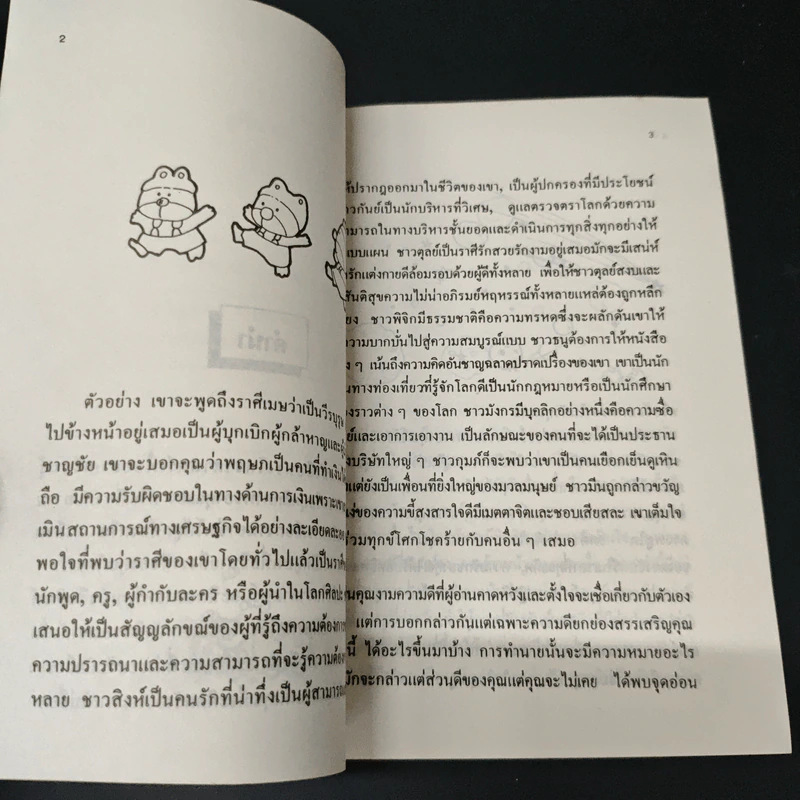 2
คำนำ
ตัวอย่าง เขาจะพูดถึงราศีเมษว่าเป็นวีรบุรุษ
ไปข้างหน้าอยู่เสมอเป็นผู้บุกเบิกผู้กล้าหาญและ
ชาญชัย เขาจะบอกคุณว่าพฤษภเป็นคนที่ทำเงิน
ถือ มีความรับผิดชอบในทางด้านการเงินเพราะ
เมินสถานการณ์ทางเศรษฐกิจได้อย่างละเอียด
พอใจที่พบว่าราศีของเขาโดยทั่วไปแล้วเป็น
นักพูด, ครู, ผู้กำกับละคร หรือผู้นำในโลกศิลปะ
เสนอให้เป็นสัญญลักษณ์ของผู้ที่รู้ถึงความต้องการ
ความปรารถนาและความสามารถที่จะรู้ความต้อง
หลาย ชาวสิงห์เป็นคนรักที่น่าทึ่งเป็นผู้สามารถ
3
ปรากฎออกมาในชีวิตของเขา, เป็นผู้ปกครองที่มีประโยชน์
กันย์เป็นนักบริหารที่วิเศษ, ดูแลตรวจตราโลกด้วยความ
มารถในทางบริหารชั้นยอดและดำเนินการทุกสิ่งทุกอย่างให้
แบบแผน ชาวตุลย์เป็นราศีรักสวยรักงามอยู่เสมอมักจะมีเสน่ห์
รักแต่งกายดีล้อมรอบด้วยผู้ดีทั้งหลาย เพื่อให้ชาวตุลย์สงบและ
สันติสุขความไม่น่าอภิรมย์หฤหรรณ์ทั้งหลายแหล่ต้องถูกหลีก
ชาวพิจิกมีธรรมชาติคือความทรหดซึ่งจะผลักดันเขาให้
ความบากบั่นไปสู่ความสมบูรณ์แบบ ชาวธนูต้องการให้หนังสือ
ๆ เน้นถึงความคิดอันชาญฉลาดปราดเปรื่องของเขา เขาเป็นนัก
นทางท่องเที่ยวที่รู้จักโลกดีเป็นนักกฎหมายหรือเป็นนักศึกษา
องราวต่าง ๆ ของโลก ชาวมังกรมีบุคลิกอย่างหนึ่งคือความซื่อ
ย์และเอาการเอางาน เป็นลักษณะของคนที่จะได้เป็นประธาน
งบริษัทใหญ่ ๆ ชาวกุมภ์ก็จะพบว่าเขาเป็นคนเยือกเย็นดูเหิน
แต่ยังเป็นเพื่อนที่ยิ่งใหญ่ของมวลมนุษย์ ชาวมีนถูกกล่าวขวัญ
ง่ของความขี้สงสารใจดีมีเมตตาจิตและชอบเสียสละ เขาเต็มใจ
ร่วมทุกข์โศกโชคร้ายกับคนอื่น ๆ เสมอ
นคุณงามความดีที่ผู้อ่านคาดหวังและตั้งใจจะเชื่อเกี่ยวกับตัวเอง
แต่การบอกกล่าวกันแต่เฉพาะความดียกย่องสรรเสริญคุณ
นี้ ได้อะไรขึ้นมาบ้าง การทำนายนั้นจะมีความหมายอะไร
มักจะกล่าวแต่ส่วนดีของคุณแต่คุณจะไม่เคย ได้พบจุดอ่อน